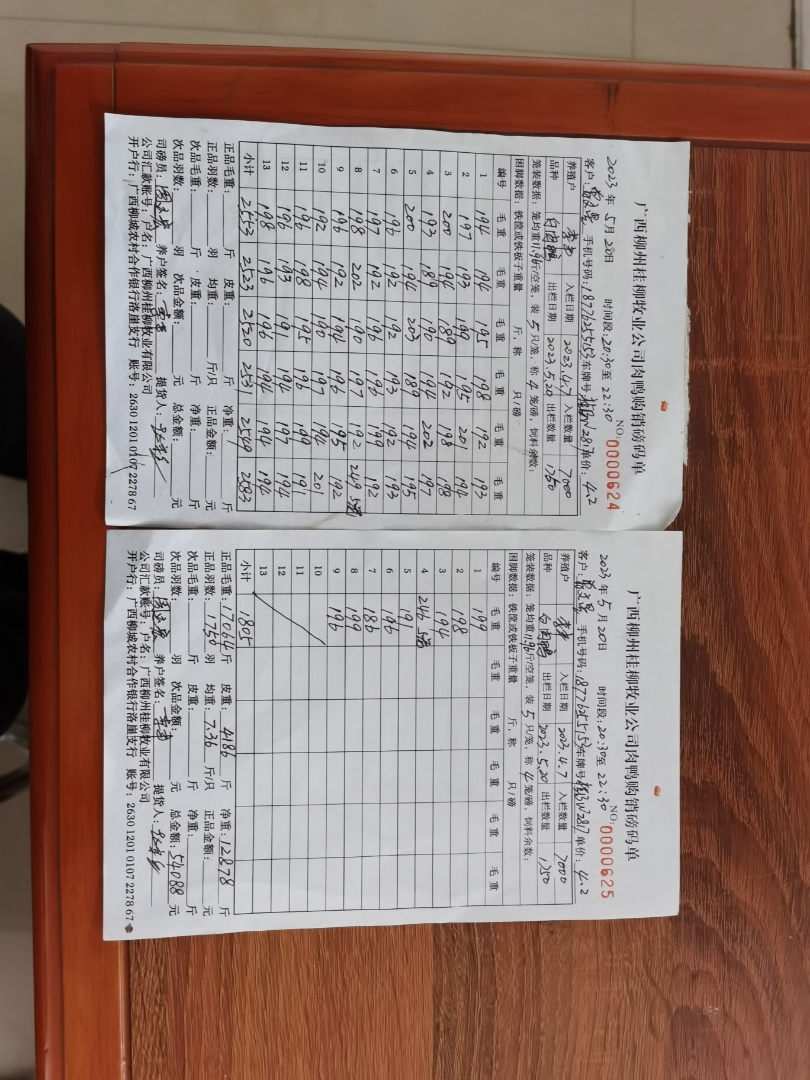 广西柳州桂柳牧业公司肉鸭购销磅码单
NO: 0000624
2023年5月20日 时间段: 20:30至22:30
手机号码: 18776255153 车牌号 单价: 4.2
养殖户 入栏日期 2023.4.7 入栏数量 7000
品种 白肉鸭 出栏日期 2023.5.20 出栏数量 1750
笼装数据: 笼均重11.96斤/空笼, 装5只/笼, 称4笼/磅, 饲料余数:
困脚数据: 铁筐或铁板子重量 斤, 称 只/磅
编号 毛重 毛重 毛重 毛重 毛重 毛重
1 194 194 195 198 192 193
2 197 193 199 195 201 194
3 200 194 189 192 198 198
4 193 189 190 194 202 197
5 200 194 203 189 194 195
6 196 192 192 193 192 193
7 197 192 196 196 199 192
8 198 202 190 197 192 249 5笼
9 196 192 194 196 195 192
10 192 194 190 197 194 201
11 196 198 195 193 199 191
12 196 193 191 197 197 194
13 198 196 196 194 194 194
小计 2553 2523 2520 2531 2549 2583
正品毛重: 斤 皮重: 斤 净重: 斤
正品羽数: 羽 均重: 斤/只 正品金额: 元
次品毛重: 斤 皮重: 斤 净重: 斤
次品羽数: 羽 次品金额: 元 总金额: 元
司磅员: 养户签名: 提货人:
公司汇款账号: 户名: 广西柳州桂柳牧业有限公司
开户行: 广西柳城农村合作银行洛崖支行 账号: 2630 1201 0107 2278 67
广西柳州桂柳牧业公司肉鸭购销磅码单
NO: 0000625
2023年5月20日 时间段: 20:30至22:30
手机号码: 18776255153 车牌号 单价: 4.2
养殖户 入栏日期 2023.4.7 入栏数量 7000
品种 白肉鸭 出栏日期 2023.5.20 出栏数量 1750
笼装数据: 笼均重11.96斤/空笼, 装5只/笼, 称4笼/磅, 饲料余数:
困脚数据: 铁筐或铁板子重量 斤, 称 只/磅
编号 毛重 毛重 毛重 毛重 毛重 毛重
1 199
2 198
3 194
4 246 5笼
5 191
6 196
7 186
8 199
9 196
10
11
12
13
小计 1805
正品毛重: 17064斤 皮重: 4186斤 净重: 12878斤
正品羽数: 1750羽 均重: 7.36斤/只 正品金额: 元
次品毛重: 斤 皮重: 斤 净重: 斤
次品羽数: 羽 次品金额: 元 总金额: 54088元
司磅员: 养户签名: 提货人:
公司汇款账号: 户名: 广西柳州桂柳牧业有限公司
开户行: 广西柳城农村合作银行洛崖支行 账号: 2630 1201 0107 2278 67